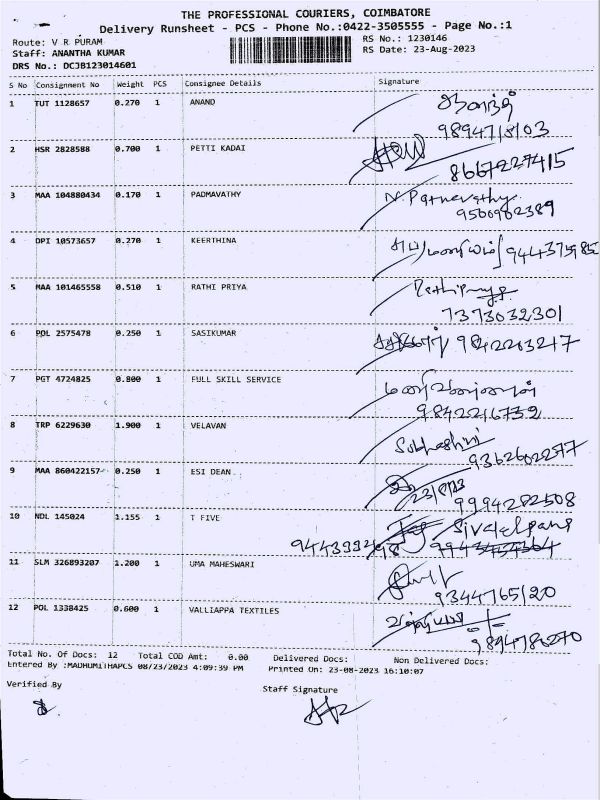 THE PROFESSIONAL COURIERS, COIMBATORE
Delivery Runsheet - PCS - Phone No.:0422-3505555 - Page No.:1
Route: V R PURAM
Staff: ANANTHA KUMAR
DRS No.: DCJB123014601
RS No.: 1230146
RS Date: 23-Aug-2023
S No Consignment No Weight PCS Consignee Details Signature
1 TUT 1128657 0.270 1 ANAND ஆனந்த்
9894718103
2 HSR 2828588 0.700 1 PETTI KADAI
8667227415
3 MAA 104880434 0.170 1 PADMAVATHY
9566982389
4 DPI 10573657 0.270 1 KEERTHINA
5 MAA 101465558 0.510 1 RATHI PRIYA
7373032301
6 POL 2575478 0.250 1 SASIKUMAR 9842203217
7 PGT 4724825 0.800 1 FULL SKILL SERVICE மணிவண்ணன்
9842216732
8 TRP 6229630 1.900 1 VELAVAN Subhashini
9362602277
9 MAA 860422157 0.250 1 ESI DEAN 23/8/23
9994282508
10 NDL 145024 1.155 1 T FIVE
11 SLM 326893207 1.200 1 UMA MAHESWARI
9344765120
12 POL 1338425 0.600 1 VALLIAPPA TEXTILES
9894786270
Total No. Of Docs: 12 Total COD Amt: 0.00 Delivered Docs: Non Delivered Docs:
Entered By :MADHUMITHAPCS 08/23/2023 4:09:39 PM Printed On: 23-08-2023 16:10:07
Verified By
Staff Signature